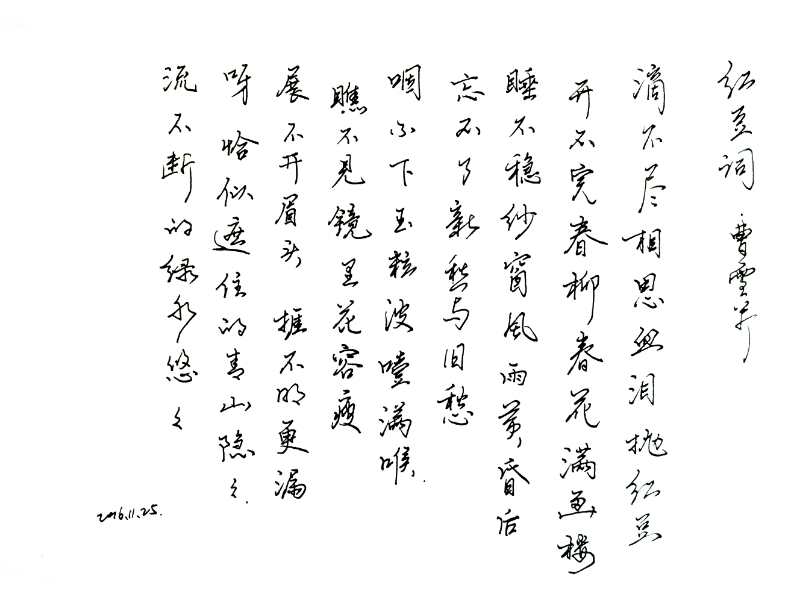 红豆词 曹雪芹
滴不尽相思血泪抛红豆
开不完春柳春花满画楼
睡不稳纱窗风雨黄昏后
忘不了新愁与旧愁
咽不下玉粒波噎满喉
瞧不见镜里花容瘦
展不开眉头 捱不明更漏
呀 恰似遮住的青山隐々
流不断的绿水悠々
2016.11.25.